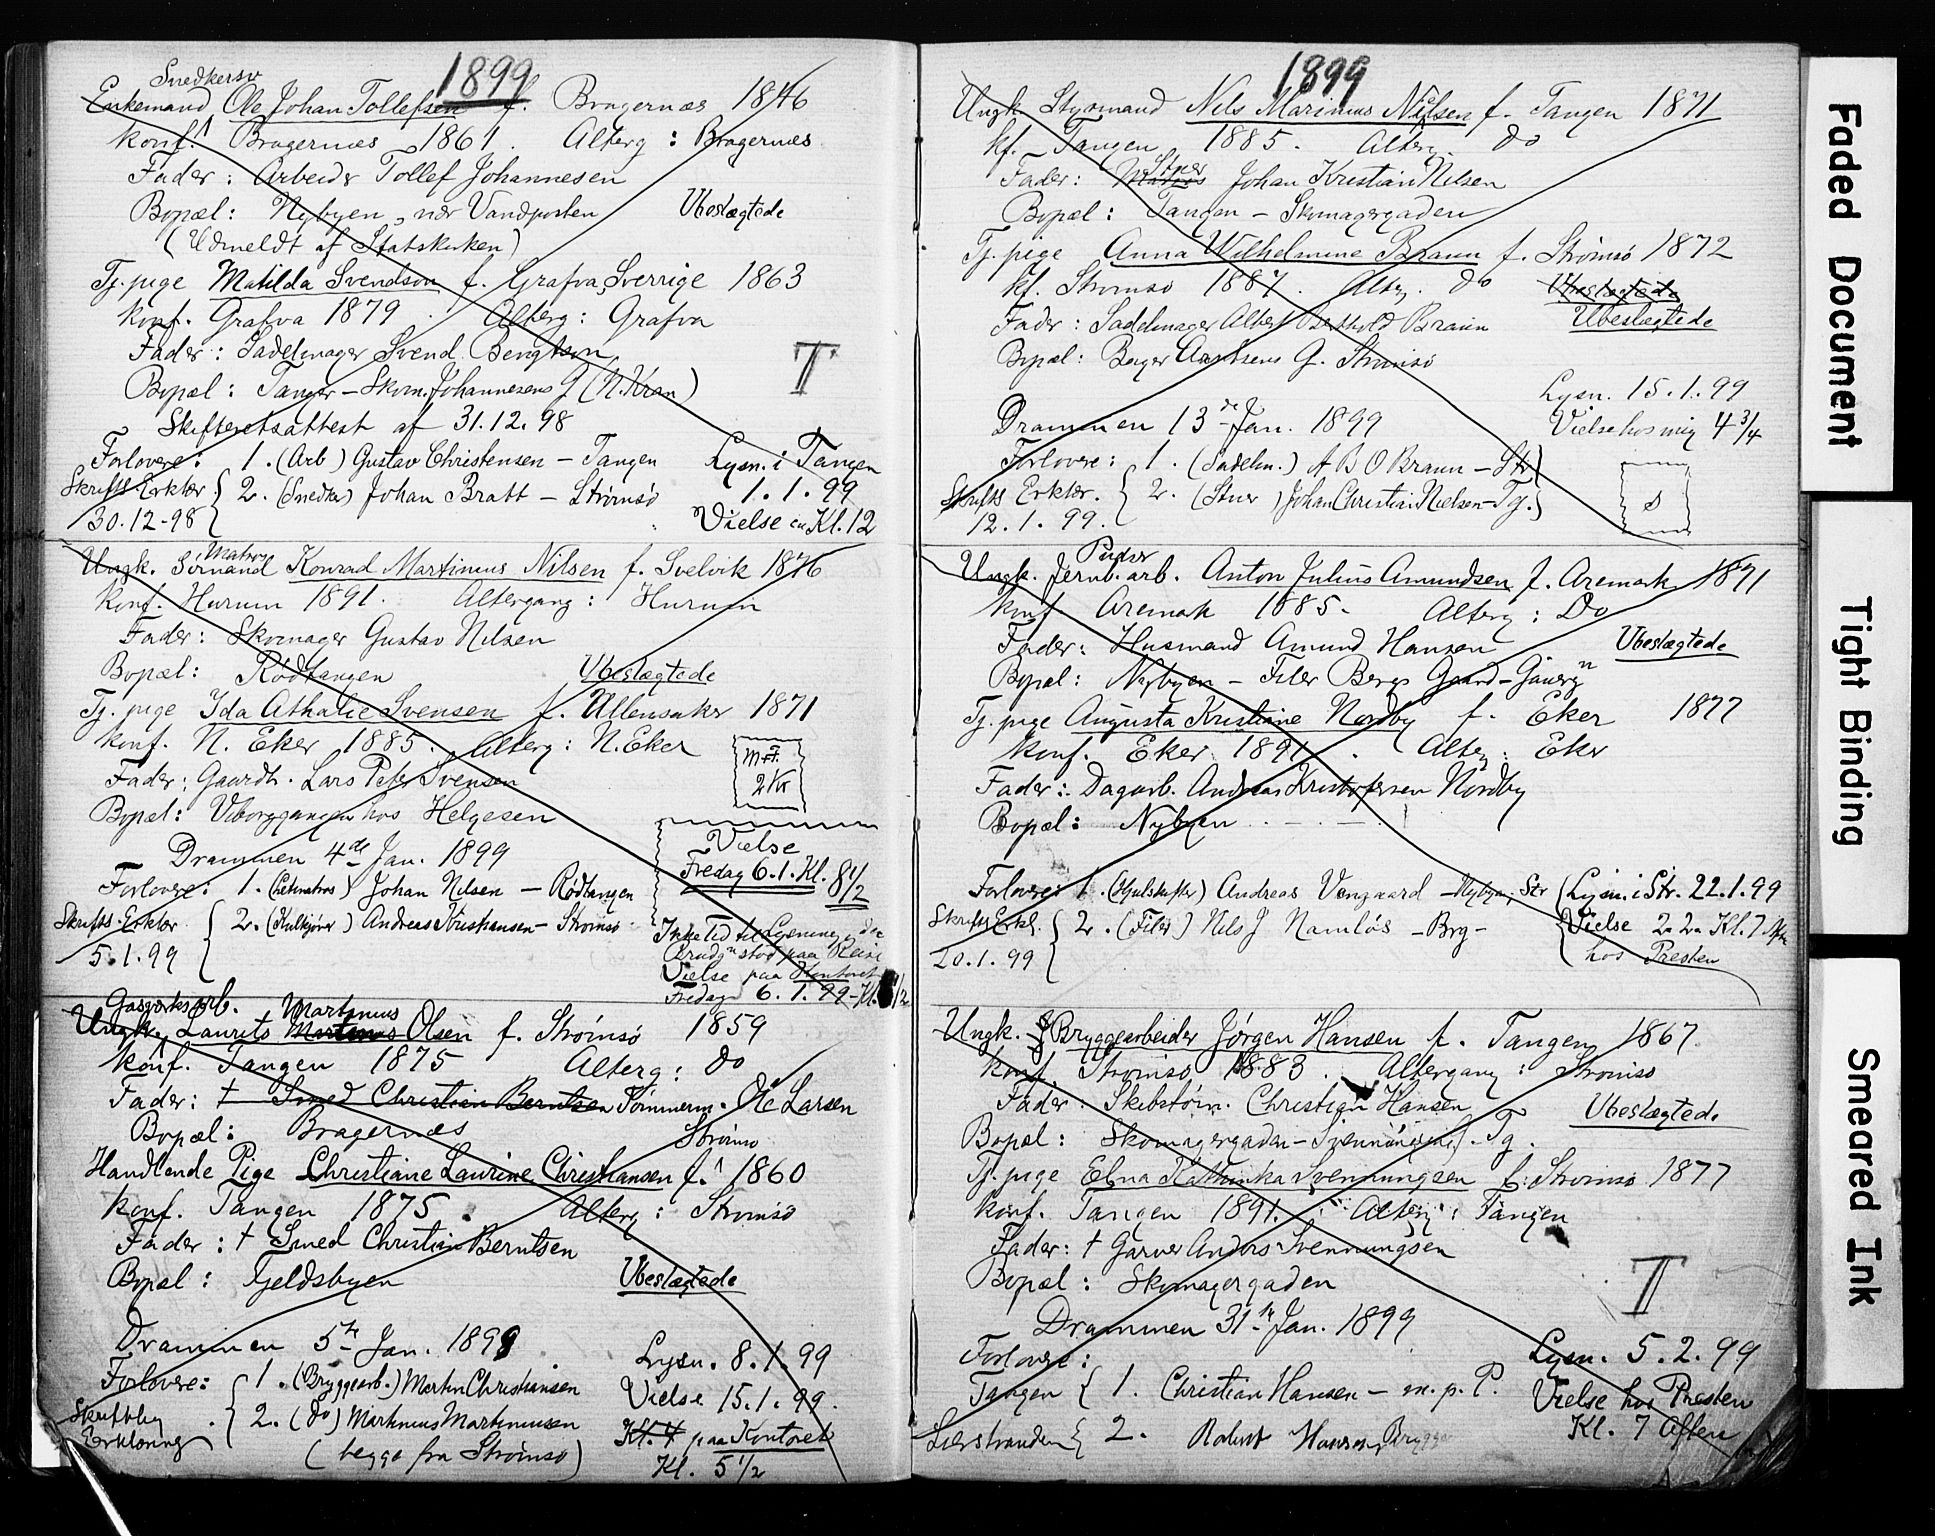 1899
Snedkersv
Enkemand Ole Johan Tollefsen f. Bragernæs 1846
konf. Bragernæs 1861. Alterg: Bragernæs
Fader: Arbeider Tollef Johannesen
Bopæl: Nybyen, nær Vandposten Ubeslægtede
(Udmeldt af Statskirken)
Tj. pige Matilda Svendson f. Grafva, Sverrige 1863
konf. Grafva 1879. Alterg: Grafva
Fader: Sadelmager Svend Bengtson
Bopæl: Tangen - Skom. Johannesens G (N. Kran)
T
Skifteretsattest af 31.12.98
Forlovere: 1. (Arb) Gustav Christensen - Tangen
Skriftl. Erklær. 2. (Snedker) Johan Bratt - Strømsø
30.12-98
Lysn. i Tangen
1.1.99
Vielse Kl. 12
Matros
Ungk. Sømand Konrad Martinius Nilsen f. Svelvik 1876
konf. Hurum 1891. Altergang: Hurum
Fader: Skomager Gustav Nilsen
Bopæl: Rødtangen Ubeslægtede
Tj. pige Ida Athalie Svensen f. Ullensaker 1871
konf. N. Eker 1885. Alterg: N. Eker
Fader: Gaardb. Lars Peter Svensen
Bopæl: Viborggangen hos Helgesen
M.F.
2 Kr
Drammen 4de Jan. 1899
Vielse
Fredag 6.1. Kl. 8 1/2
Forlovere: 1. Johan Nilsen - Rødtangen
Skriftl. Erklær 2. (Kulkjører) Andreas Kristiansen - Strømsø
5.1.99
Ikke Tid til Lysning, da
Brudgn stod paa Reise
Vielse paa Kontoret
Fredag 6.1.99 - Kl. 1/2
Gasverksarb. Martinius
Ungk. Laurits Martinus Olsen f. Strømsø 1859
konf. Tangen 1875 Alterg: do
Fader: † Smed Christian Berntsen Tømmerm. Ole Larsen
Bopæl: Bragernæs Strømsø
Handlende Pige Christiane Laurine Christiansen f. 1860
konf. Tangen 1875. Alterg: Strømsø
Fader: † Smed Christian Berntsen
Bopæl: Tjeldsbyen Ubeslægtede
Drammen 5te Jan. 1899
Forlovere: 1. (Bryggearb.) Martin Christiansen
Skriftlig 2. (do) Martinius Martiniussen
Erklæring (begge fra Strømsø)
Lysn. 8.1.99
Vielse 15.1.99.
Kl. 4 paa Kontoret
Kl. 5 1/2
1899
Ungk. Styrmand Nils Marinius Nielsen f. Tangen 1871
kf. Tangen 1885. Alterg. do
Stuer
Fader: Matros Johan Kristian Nilsen
Bopæl: Tangen - Skomagergaden
Tj. pige Anna Wilhelmine Braun f. Strømsø 1872
kf. Strømsø 1887. Alterg. do Ubeslægtede
Fader: Sadelmager Albert Berthold Braun Ubeslægtede
Bopæl: Bager Aartsens G. Strømsø
Drammen 13de Jan. 1899
Lysn. 15.1.99
Vielse hos mig 4 3/4
Forlovere: 1. (Sadelm.) A B O Braun - Str
Skriftl Erklær. 2. (Stuer) Johan Christian Nielsen - Tg.
12.1.99.
S
Pudser
Ungk. Jernb. arb. Anton Julius Amundsen f. Aremark 1871
konf Aremark 1885. Alterg: Do
Fader: Husmand Amund Hansen Ubeslægtede
Bopæl: Nybyen - Filer Bergs Gaard
Tj. pige Augusta Kristiane Nordby f. Eker 1877
konf. Eker 1891. Alterg: Eker
Fader: Dagarb. Andreas Kristofersen Nordby
Bopæl: Nybyen
Forlovere: 1. Andreas Vengaard - Nybyen, Str
Skriftl Erkl. 2. (Filer) Nils J Namløs - Brg -
20.1.99
Lysn. i Str. 22.1.99
Vielse Kl. 7 Aften
hos Presten
Ungk. Bryggearbeider Jørgen Hansen f. Tangen 1867.
konf. Strømsø 1883. Altergang: Strømsø
Fader. Skibstøm. Christian Hansen Ubeslægtede
Bopæl: Skomagergaden - Svennungsen Tg.
Tj. pige Elna Kathinka Svennungsen f. Strømsø 1877
konf. Tangen 1891. Alterg: Tangen
Fader: † Garver Anders Svennungsen
Bopæl: Skomagergaden
T
Drammen 31te Jan. 1899
Forlovere:
Tangen 1. Christian Hansen - m. p. P.
Lierstranden 2. Robert Hansen, Brygge
Lysn. 5.2.99
Vielse hos Presten
Kl. 7 Aften
Faded Document
Tight Binding
Smeared Ink